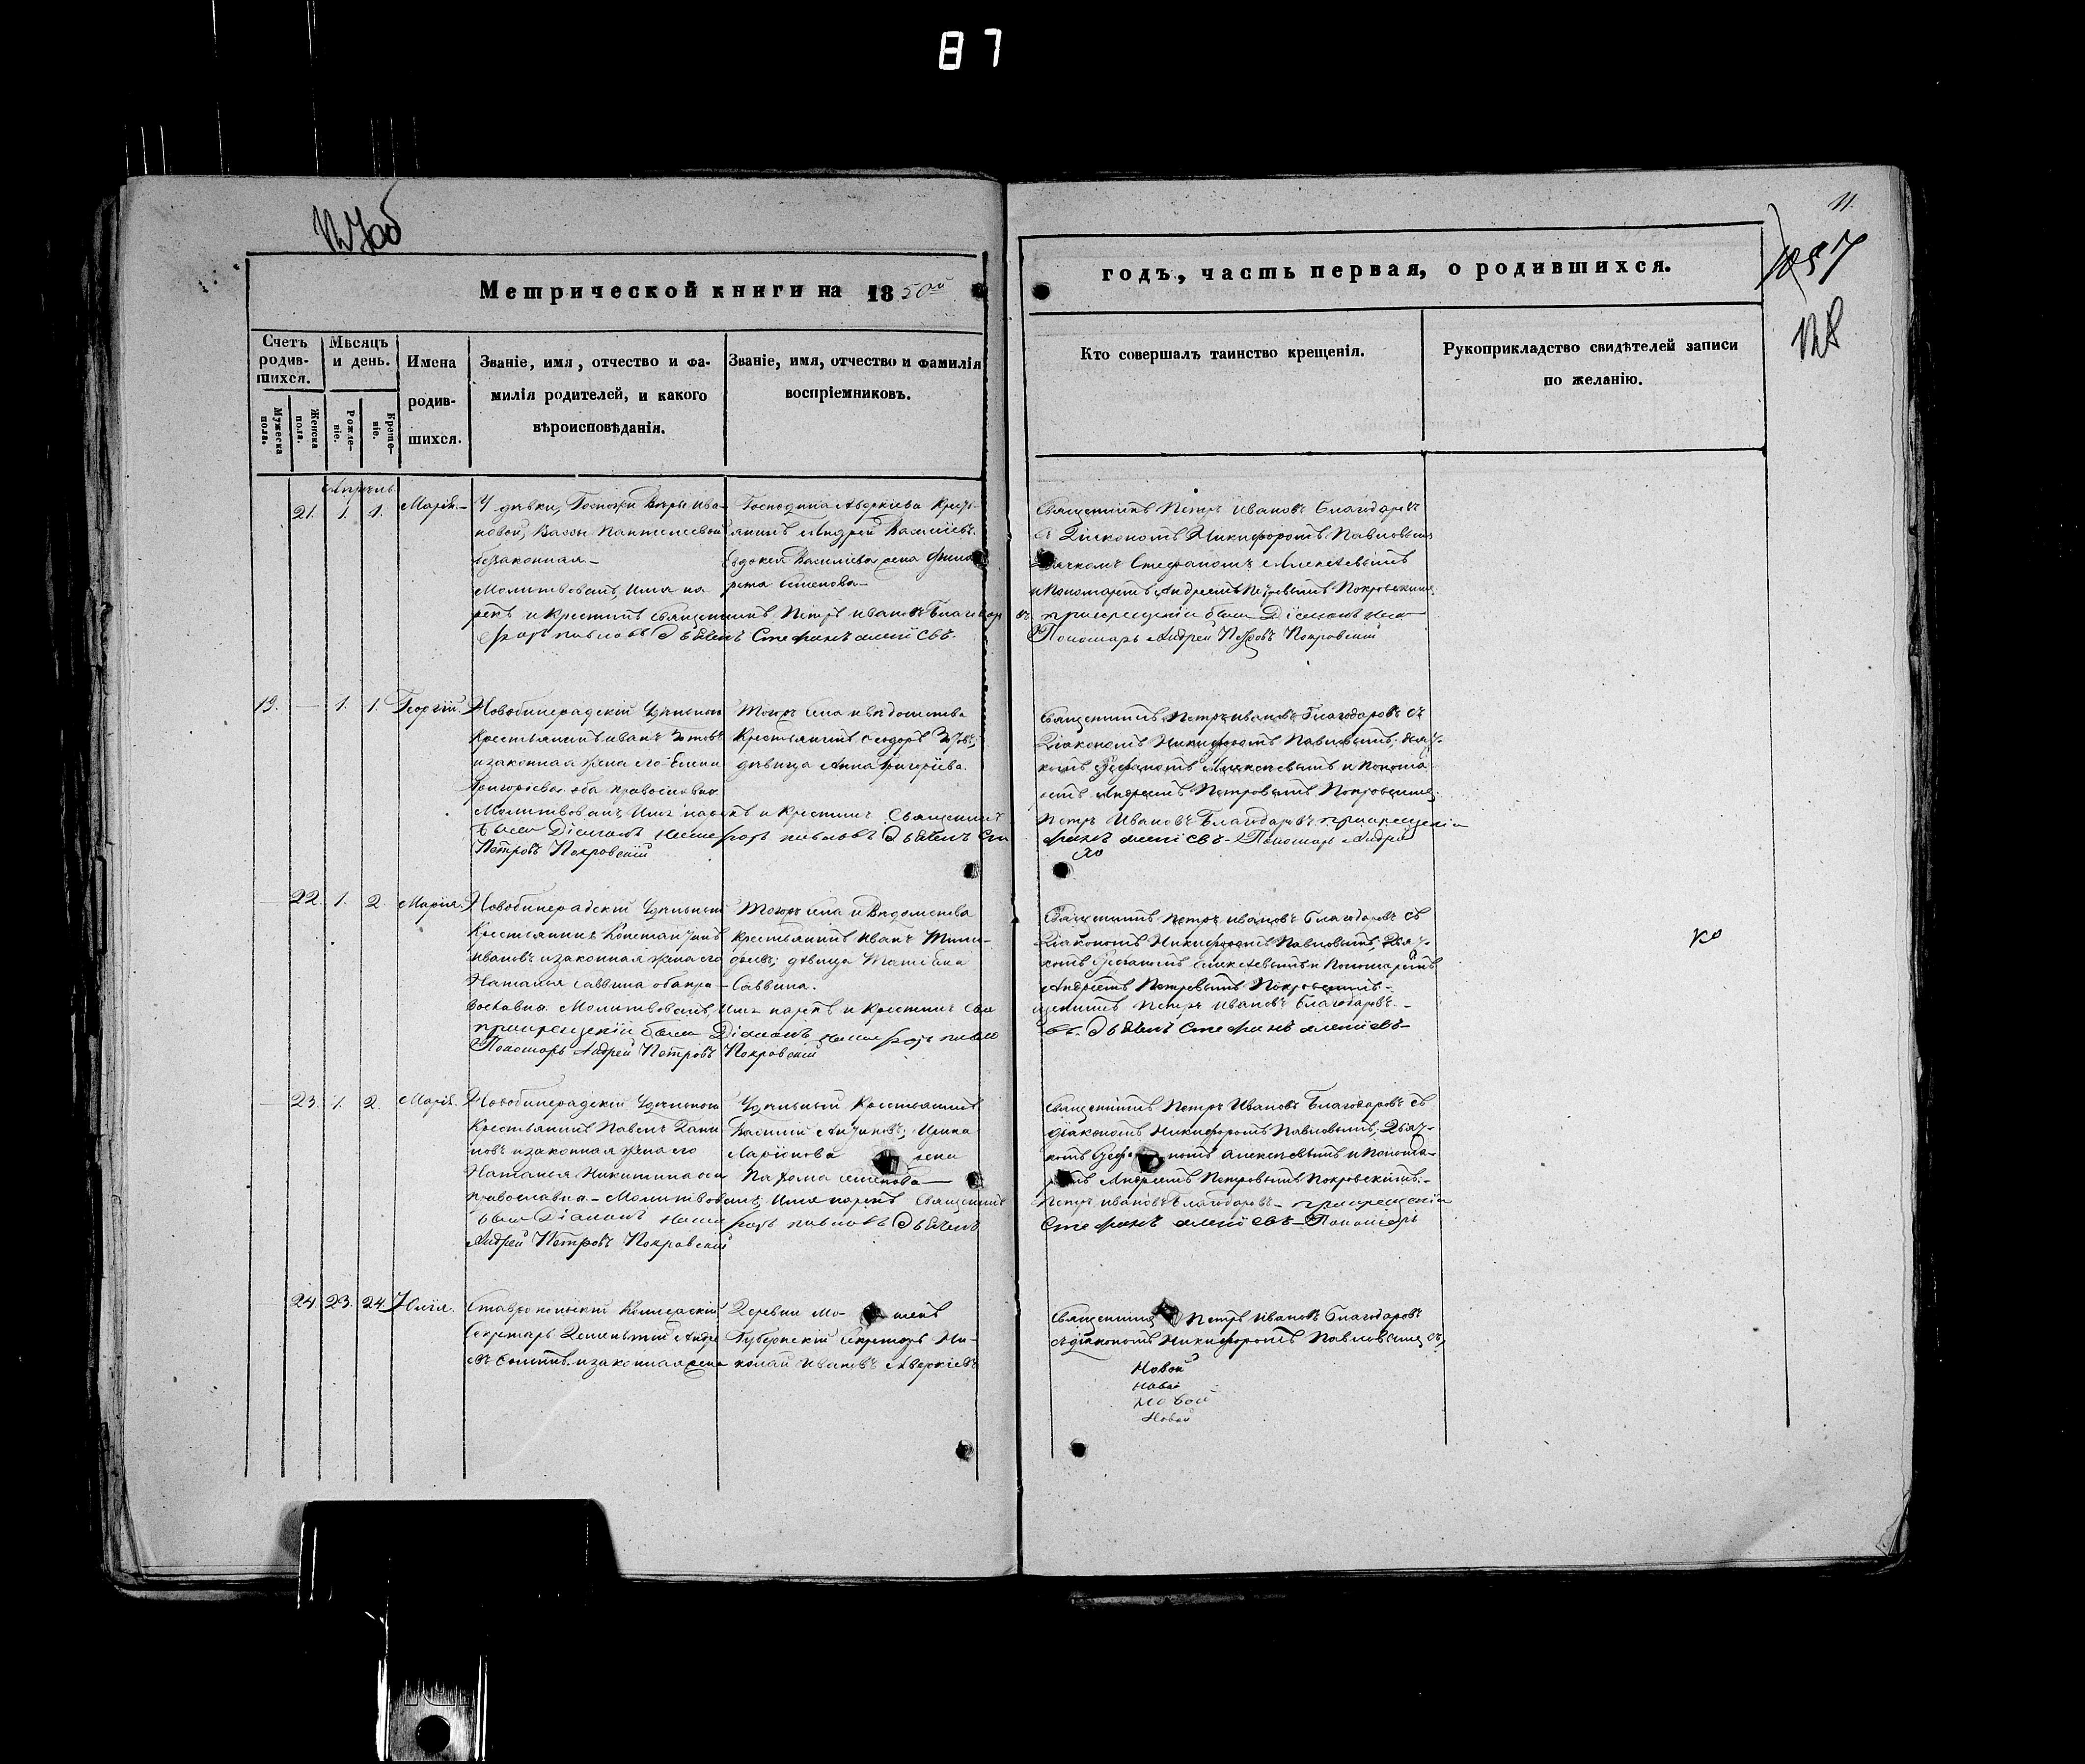 87
11.
1057
Метрической книги на 1850ой
годъ, часть первая, о родившихся.
Счетъ родив-шихся.
Мѣсяцъ и день.
Имена родив-шихся.
Званіе, имя, отчество и фа-
милія родителей, и какого
вѣроисповѣданія.
Званіе, имя, отчество и фамилія
воспріемниковъ.
Кто совершалъ таинство крещенія.
Рукоприкладство свидѣтелей записи
по желанію.
Мужеска пола.
Женска пола.
Рожде-ніе.
Креще-ніе.
Апрѣль
21. 1. 1. Марія.
У дѣвки, Госпожи Вѣры Ива-
новой, Пантелеевой
беззаконная
Молитвовалъ, Имя на
рекъ и Крестилъ Священникъ Петръ Ивановъ Благодар
Павловъ Дьячекъ Стефанъ Алексіевъ.
Господина Аверкіева Кресть-
янинъ Андрей Васильевъ.
Евдокія Васильева жена Фила
рета Семенова
Священникъ Петръ Ивановъ Благодаровъ
съ Діакономъ Никифоромъ Павловымъ
Дьячкомъ Стефаномъ Алексѣевымъ
и Пономаремъ Андреемъ Петровымъ Покровскимъ
при крещеніи были Діаконъ
Пономарь Андрей Петровъ Покровскій
19. — 1. 1. Георгій.
Новобинарадскій Удѣльный
Крестьянинъ Иванъ Зотовъ
и законная жена его Елена
Григорьева оба православна.
Молитвовалъ Имя нарекъ и Крестилъ Священникъ
были Діаконъ Павловъ Дьячекъ
Петровъ Покровскій
Тогожъ села и вѣдомства
Крестьянинъ Ѳеодоръ Зотовъ,
дѣвица Анна Григорьева.
Священникъ Петръ Ивановъ Благодаровъ съ
Діакономъ Никифоромъ Павловымъ, Дьяч-
комъ Стефаномъ Алексѣевымъ и Понома
Андреемъ Петровымъ Покровскимъ
Петръ Ивановъ Благодаровъ при крещеніи
фанъ Алексіевъ - Пономарь Андрей
22. 1. 2. Марія.
Новобинарадскій Удѣльный
Крестьянинъ Константинъ
Ивановъ и законная жена его
Наталья Саввина оба пра-
вославна. Молитвовалъ, Имя нарекъ и Крестилъ Свя
при крещеніи были Діаконъ
Пономарь Андрей Петровъ Покровскій
Тогожъ села и Вѣдомства
Крестьянинъ Иванъ Тимо-
фѣевъ; дѣвица
Саввина.
Священникъ Петръ Ивановъ Благодаровъ съ
Діакономъ Никифоромъ Павловымъ, Дьяч-
комъ Стефаномъ Алексѣевымъ и Пономаремъ
Андреемъ Петровымъ Покровскимъ.
щенникъ Петръ Ивановъ Благодаровъ.
въ. Дьячекъ Стефанъ Алексіевъ
23. 1. 2. Марія.
Новобинарадскій Удѣльный
Крестьянинъ Павелъ Дани
ловъ и законная жена его
Наталья Никитина оба
православна - Молитвовалъ, Имя нарекъ Священникъ
были Діаконъ Павловъ Дьячекъ
Андрей Петровъ Покровскій
Удѣльный Крестьянинъ
Василій Ирина
Ларіонова жена
Пахома Семенова
Священникъ Петръ Ивановъ Благодаровъ съ
діакономъ Никифоромъ Павловымъ; Дьяч-
комъ Стефаномъ Алексѣевымъ и Понома-
ремъ Андреемъ Петровымъ Покровскимъ.
Петръ Ивановъ Благодаровъ - при крещеніи
Стефанъ Алексіевъ - Пономарь
24 23. 24 Юлія.
Ставропольскій Коллежскій
Секретарь Андре
евъ и законная жена
Деревни
Губернскій Секретарь Ни-
колай Ивановъ Аверкіевъ
Священникъ Петръ Ивановъ Благодаровъ
съ діакономъ Никифоромъ Павловымъ съ,
Новой
Новой
Новой
Новой